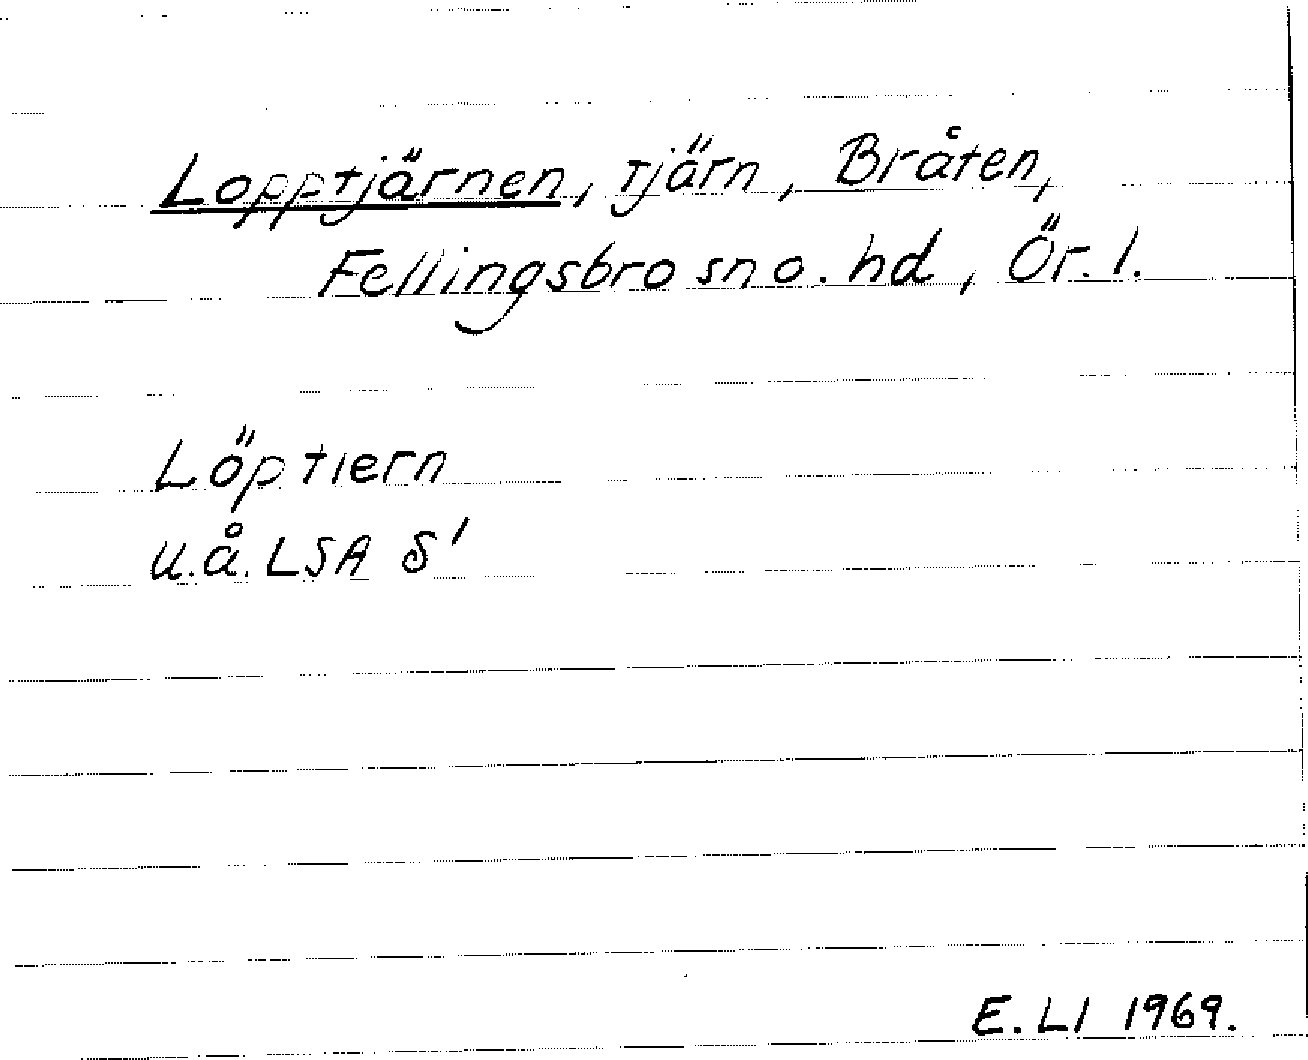 Lopptjärnen, tjärn, Bråten,
Fellingsbro sn o. hd, Ör. l.
Löptiern
u.å. LSA S'
E. Ll 1969.